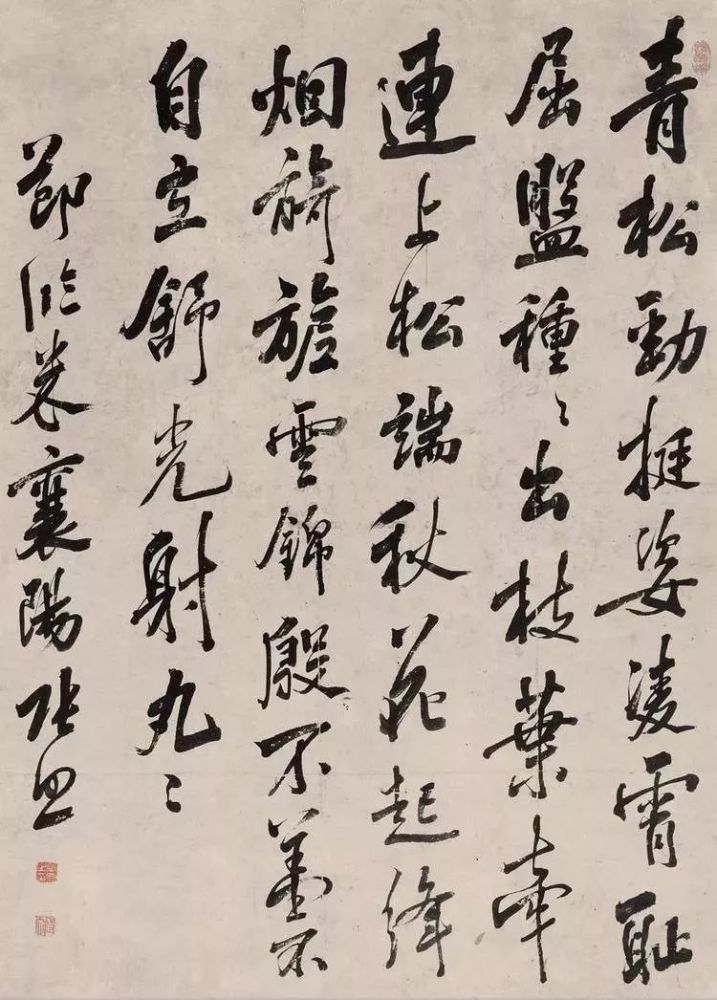 青松勁挺姿凌霄耻
屈盤種〻出枝葉牽
連上松端秋花起絳
烟旖旎雲錦殷不羞不
自立舒光射丸〻
節臨米襄陽張照